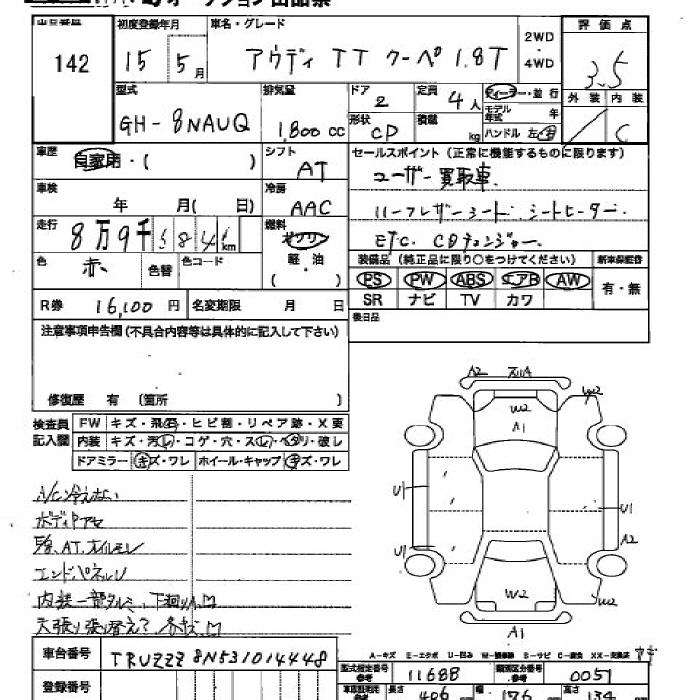 オークション出品票
出品番号
142
初度登録年月
15 5月
車名・グレード
アウディ TT クーペ 1.8T
2WD
・
4WD
評価点
3.5
外装 内装
C
型式
GH-8NAUQ
排気量
1,800 cc
ドア
2
形状
CP
定員
4人
積載
kg
ディーラー・並行
モデル年式 年
ハンドル 左・右
車歴
自家用・( )
シフト
AT
セールスポイント(正常に機能するものに限ります)
ユーザー買取車
ハーフレザーシート. シートヒーター.
ETC. CDチェンジャー.
車検
年 月( 日)
冷房
AAC
走行
8万9千 684km
燃料
ガソリン
軽・油
( )
色
赤
色替
色コード
装備品(純正品に限り○をつけてください)
新車保証書
PS PW ABS エアB AW
SR ナビ TV カワ
有・無
R券 16,100円
名変期限 月 日
後日品
注意事項申告欄(不具合内容等は具体的に記入して下さい)
修復歴 有 (箇所 )
検査員
記入欄
FW キズ・飛石・ヒビ割・リペア跡・X要
内装 キズ・汚レ・コゲ・穴・スレ・ヘタリ・破レ
ドアミラー キズ・ワレ ホイール・キャップ キズ・ワレ
A/C冷えない
ボディ中アセ
E/g、AT、オイルモレ
エンドパネルU
内装一部タルミ、下廻りサビ
天張り張り替え?
A2
W2
A1
W2
U1
U1
U1
A2
W2
W2
A1
A-キズ E-エクボ U-凹み W-補修跡 S-サビ C-腐食 XX-交換済
車台番号
TRUZZZ8N531014448
登録番号
型式指定番号
参考
11688
類別区分番号
参考
0057
長さ
406
cm
幅
176
cm
高さ
134
cm